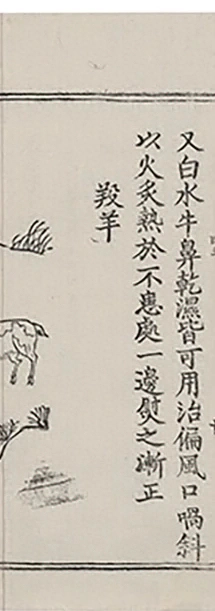 又白水牛鼻乾濕皆可用治偏風口喎斜
以火炙熱於不患處一邊熨之漸正
羖羊